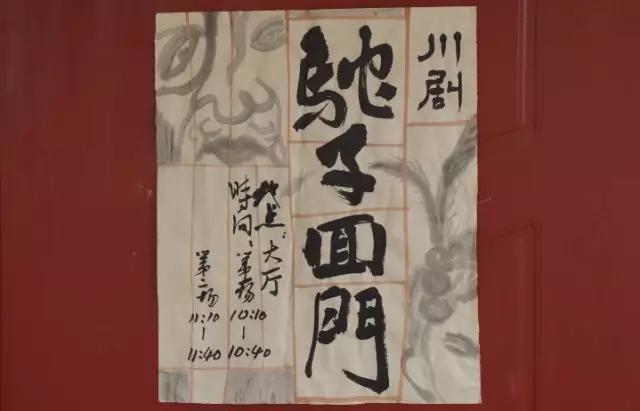 川剧
駝子回門
地点：大厅
時间：第一场 10:10—10:40
第二场 11:10—11:40